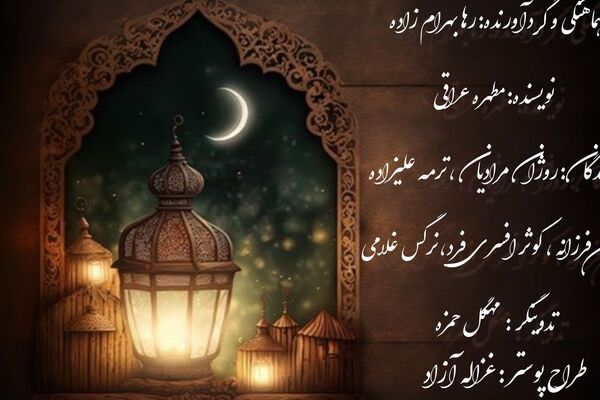 هماهنگی و گردآورنده: رها بهرام زاده
نویسنده: مطهره عراقی
روژان مرادیان، ترمه علیزاده
فرزانه، کوثر افسری فرد، نرگس غلامی
تدوینگر: مهگل حمزه
طراح پوستر: غزاله آزاد